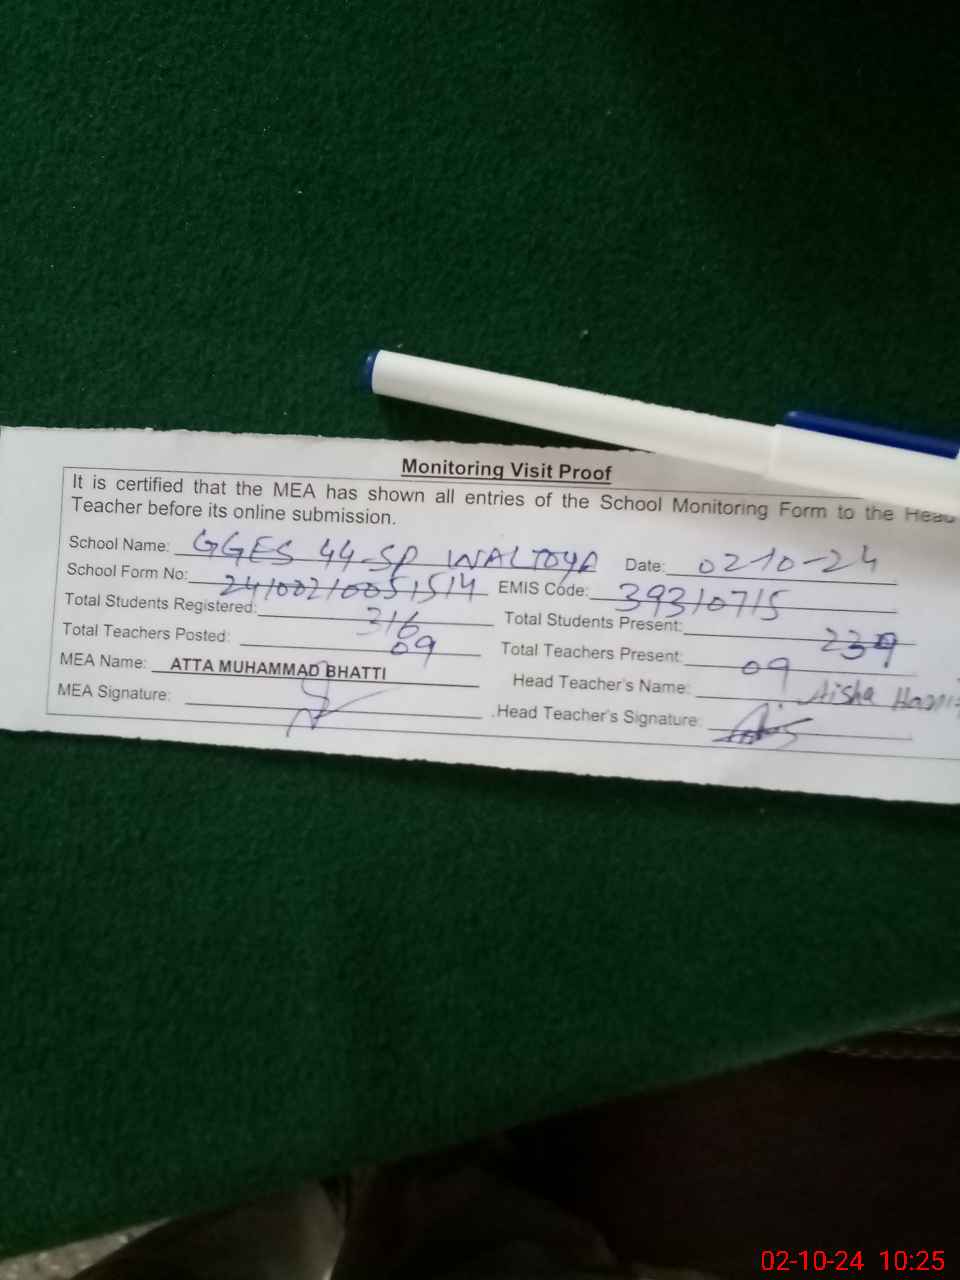 Monitoring Visit Proof
It is certified that the MEA has shown all entries of the School Monitoring Form to the Head
Teacher before its online submission.
School Name: GGES 44-SP WALTOYA Date: 02-10-24
School Form No: 24100210051514 EMIS Code: 39310715
Total Students Registered: 316 Total Students Present: 239
Total Teachers Posted: 09 Total Teachers Present: 09
MEA Name: ATTA MUHAMMAD BHATTI Head Teacher's Name: Aisha
MEA Signature: Head Teacher's Signature:
02-10-24 10:25